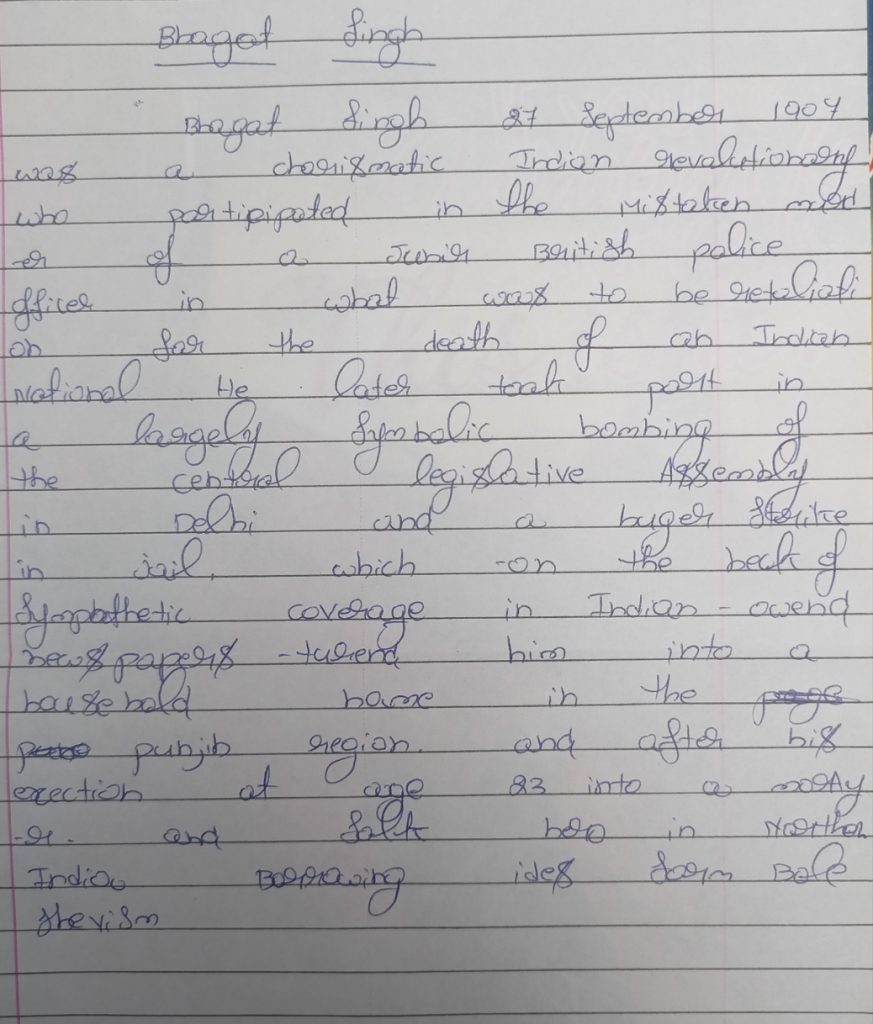 Bhagat Singh
Bhagat Singh 27 September 1907
was a charismatic Indian revalutionary
who partipipated in the Mistaken murd
-er of a Junir British police
officer in what was to be retaliati
on for the death of an Indian
National He later took part in
a largely symbolic bombing of
the central legislative Assembly
in Delhi and a huger strike
in jail, which -on the back of
Sympathetic coverage in Indian - owend
newspapers - turend him into a
household name in the
punjib region. and after his
exection at age 23 into a marty
-r. and folk hero in Northen
India Borrowing ides form Bole
shevism